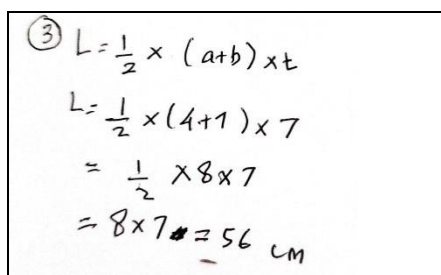 ③ L = 1/2 × (a+b) × t
L = 1/2 × (4+1) × 7
= 1/2 × 8 × 7
= 8 × 7 = 56 cm